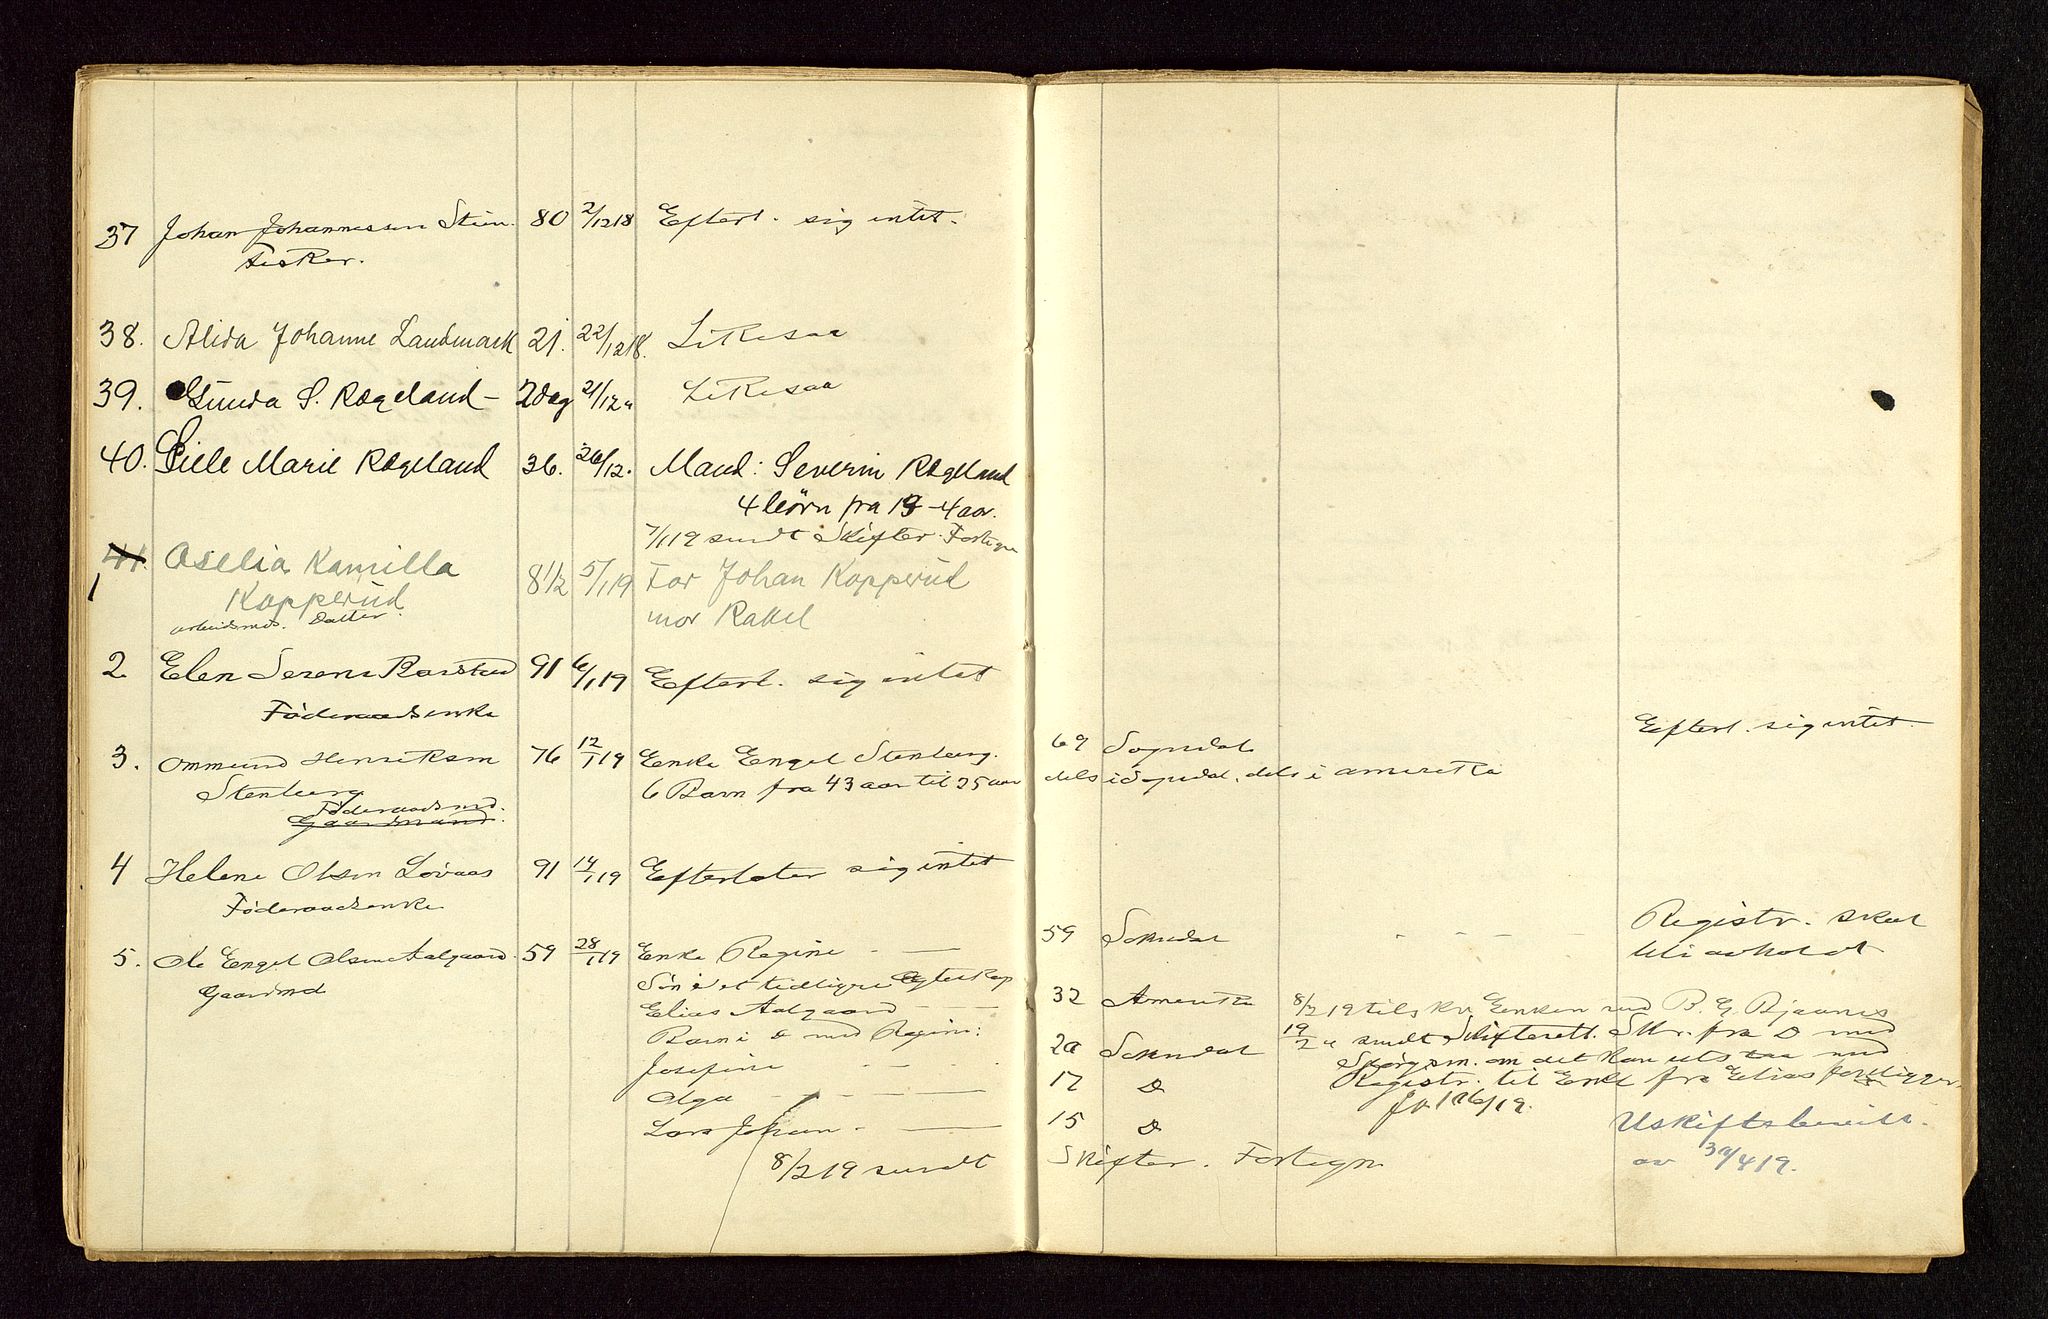 37 Johan Johannessen Stien. 80 2/12 18 Efterl. sig intet.
Fisker.
38. Alida Johanne Landmark 21. 22/12 18. Likesaa
39. Gunda S. Rægeland – 2 dag 21/12 " Likesaa
40. Siele Marie Rægeland 36. 26/12. Mand: Severin Rægeland
4 börn fra 19 – 4 aar.
7/1 19 sendt Skifter. Fortegn
41. Oselia Kamilla 8 1/2 5/1 19 Far Johan Kapperud
1 Kapperud mor Rakel
arbeidsmds. Datter.
2 Elen Serene Barstad 91 6/1 19 Efterl. sig intet
Föderaadsenke
3. Ommund Henriksen 76 12/1 19 Enke Engel Stenberg. 69 Sogndal Efterl. sig intet.
Stenberg 6 Barn fra 43 aar til 25 aar dels i Sogndal, dels i Amerika
Föderaadsmd.
Gaardmand.
4 Helene Olsen Lövaas 91 14/1 19 Efterlater sig intet
Föderaadsenke
5. Ole Engel Olsen Aalgaard. 59 28/1 19 Enke Regine 59 Sokndal Registr. skal
Gaardmd bli avholdt
Sön i et tidligre Egteskap
Elias Aalgaard 32 Amerika 8/2 19 tilskr. Enken ved B. G. Bjaanes
Barn i d med Regine: 19/2 " sendt Skifterett. Skr. fra D med
Josefine 20 Sokndal Spörgsm. om det kan utstaa med
Olga 17 D Registr. til Enke fra Elias foreligger.
Ja 1/6 19.
Lars Johan 15 D Uskiftebevilg.
8/2 19 sendt Skifter. Fortegn av 30/4 19.